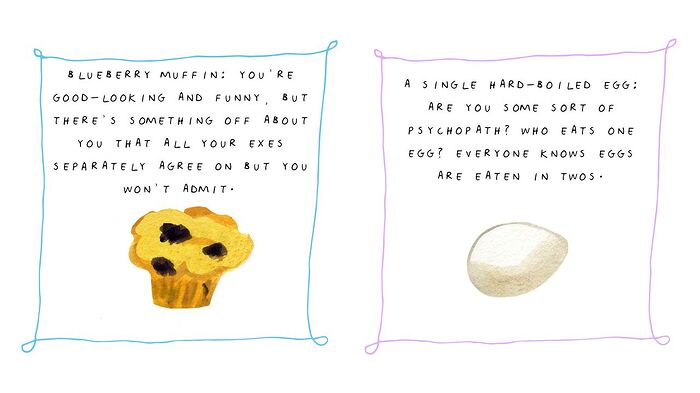 BLUEBERRY MUFFIN: YOU'RE
GOOD-LOOKING AND FUNNY, BUT
THERE'S SOMETHING OFF ABOUT
YOU THAT ALL YOUR EXES
SEPARATELY AGREE ON BUT YOU
WON'T ADMIT.
A SINGLE HARD-BOILED EGG:
ARE YOU SOME SORT OF
PSYCHOPATH? WHO EATS ONE
EGG? EVERYONE KNOWS EGGS
ARE EATEN IN TWOS.